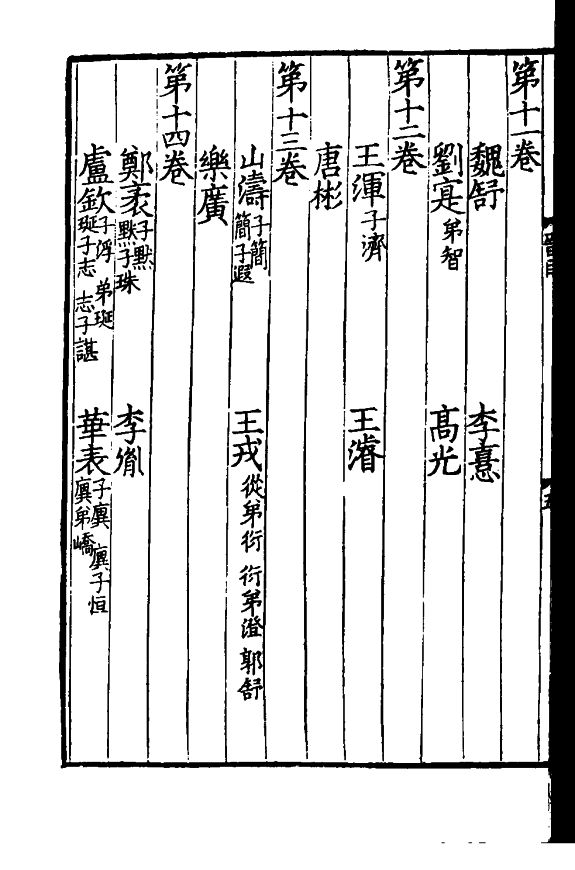 第十一卷
魏舒 李憙
劉寔 弟智 高光
第十二卷
王渾 子濟 王濬
唐彬
第十三卷
山濤 子簡 簡子遐 王戎 從弟衍 衍弟澄 郭舒
樂廣
第十四卷
鄭袤 子默 默子球 李胤
盧欽 子浮 弟珽 珽子志 志子諶 華表 子廙 廙子恒 廙弟嶠